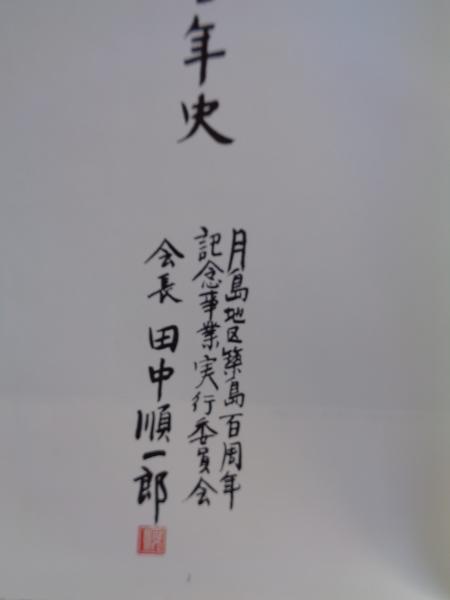 年史
月島地区築島百周年
記念事業実行委員会
会長 田中順一郎